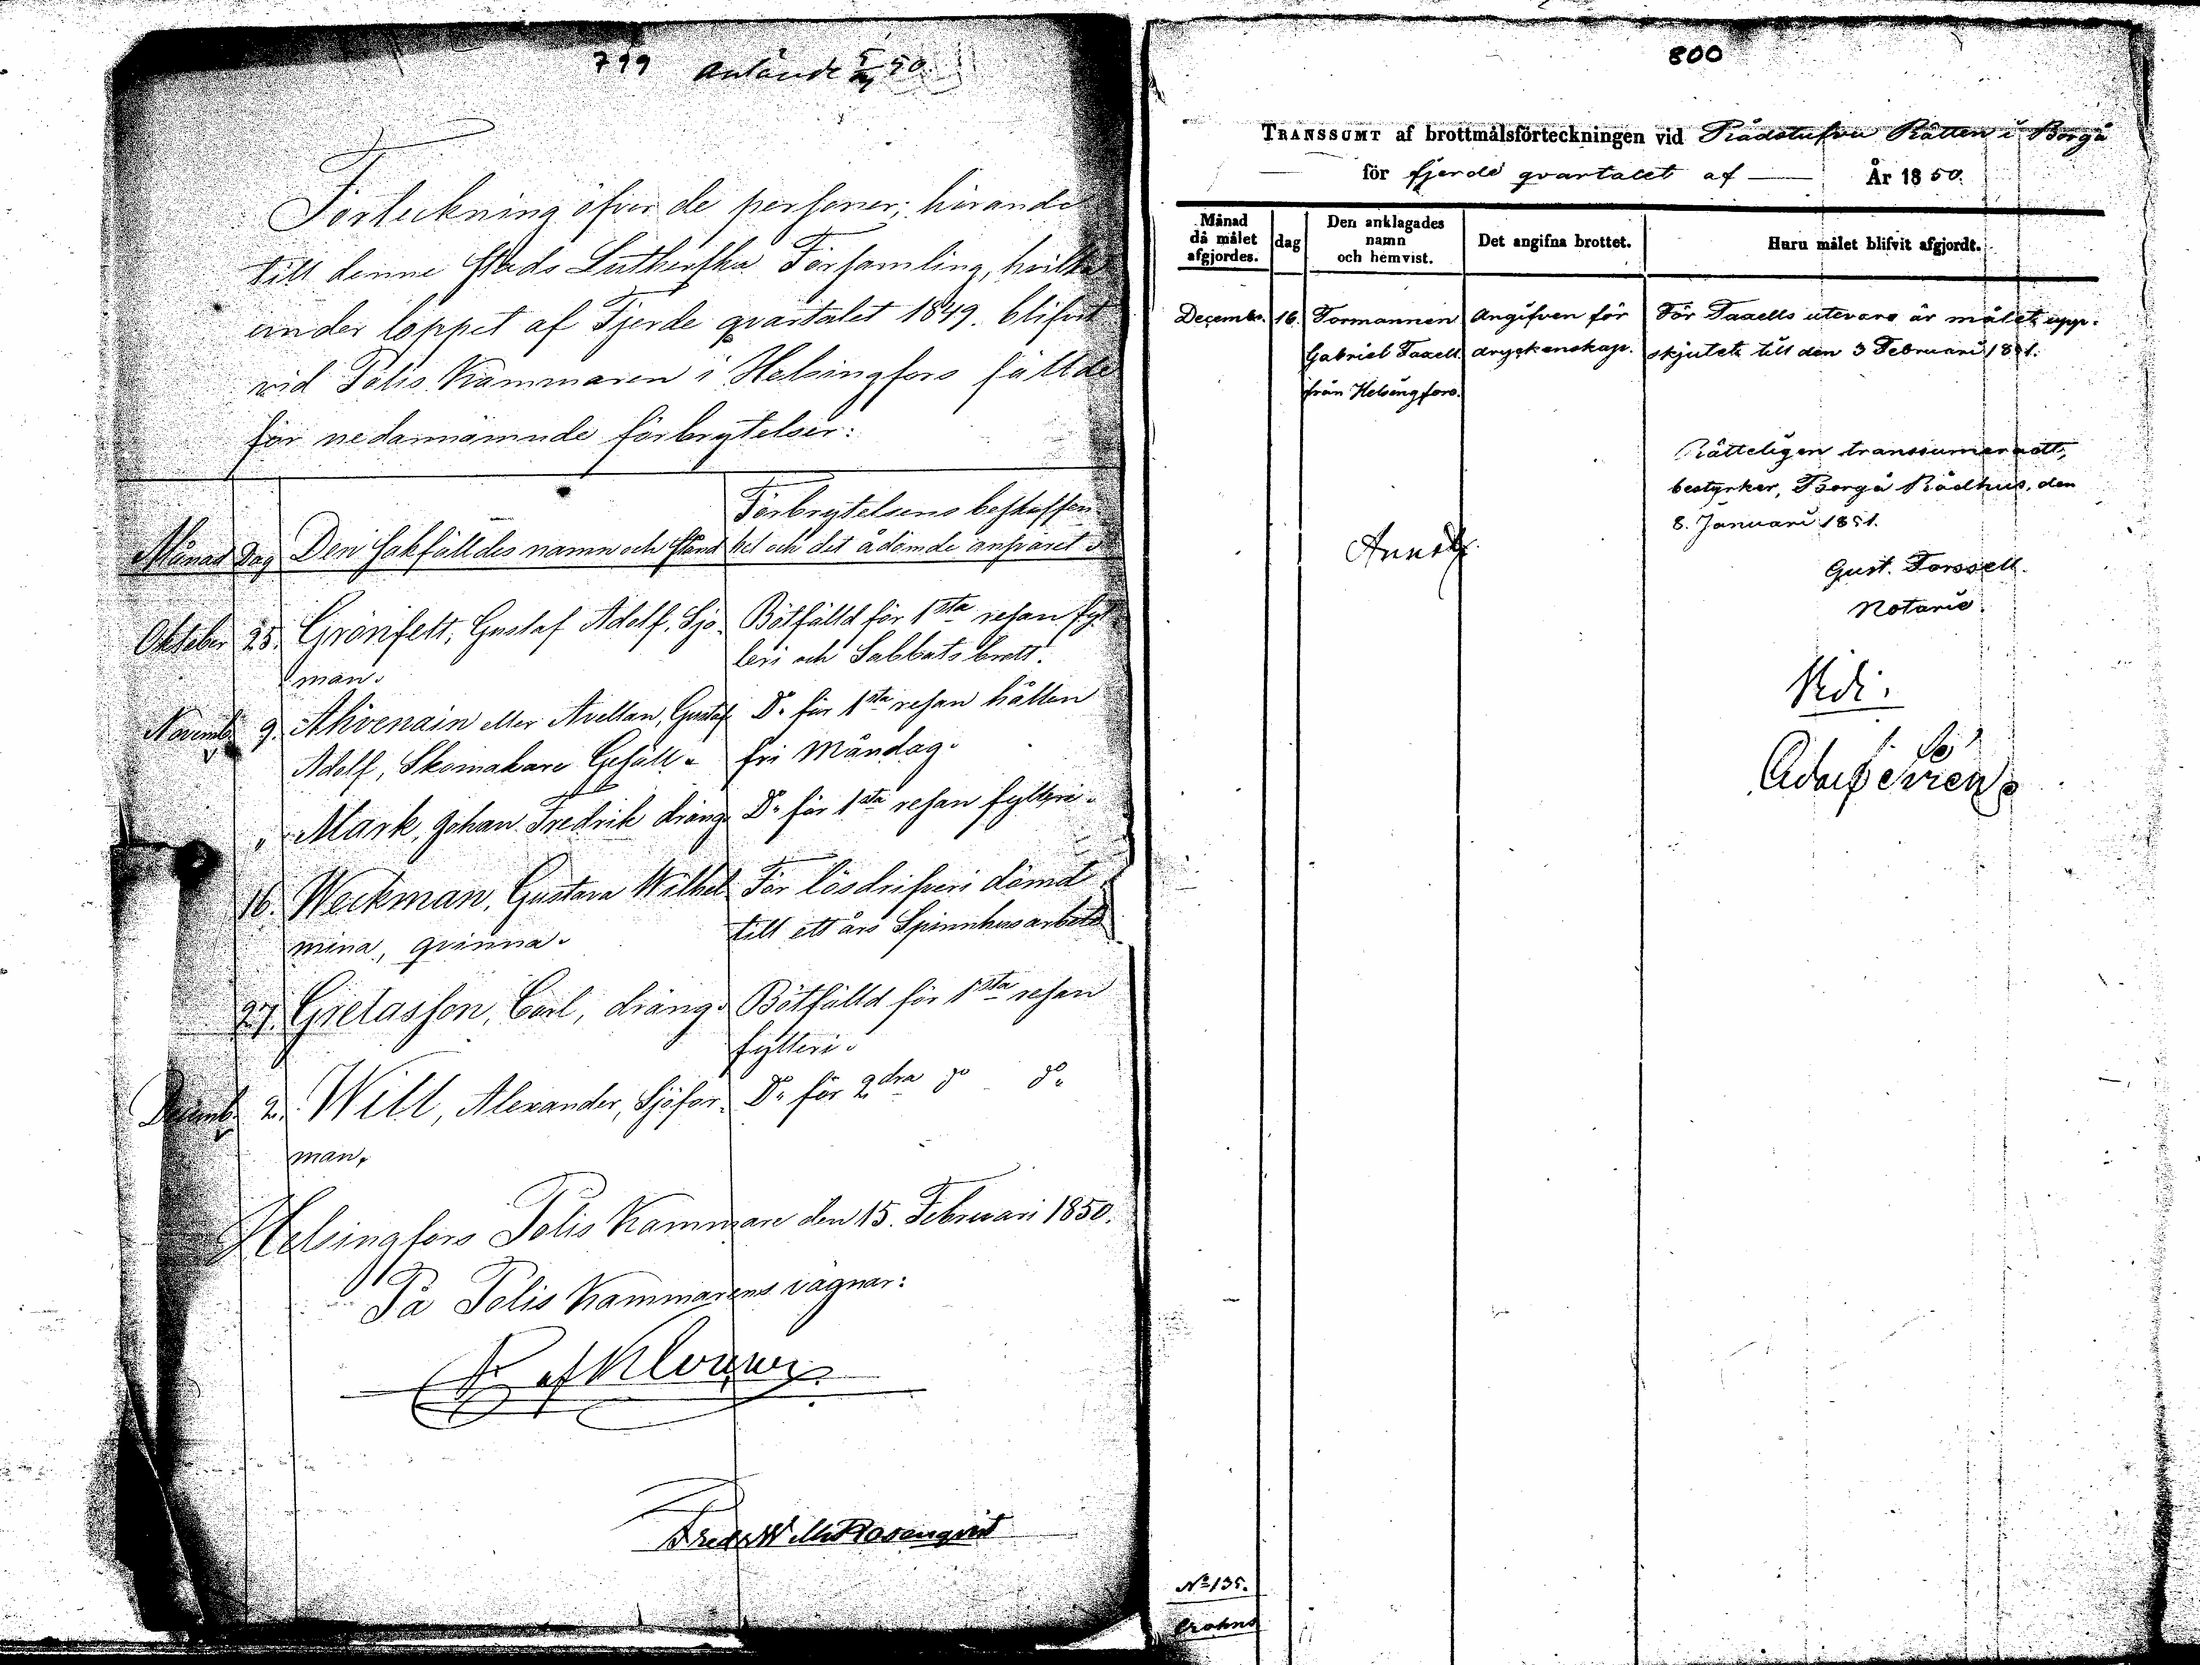 799 Anlände 5/4 50.
Förteckning öfver de personer, hörande
till denne stads Lutherska Församling, hvilka
under loppet af Fjerde qvartalet 1849. blifvit
vid Polis Kammaren i Helsingfors fällde
för nedannämnde förbrytelser:
Månad Dag Den sakfälldes namn och stånd Förbrytelsens beskaffen-
het och det ådömde ansvaret.
Oktober 25. Grönfelt, Gustaf Adolf, Sjö- Bötfälld för 1sta resan fyl-
man. leri och Sabbats brott.
Novemb. 9. Ahvenain eller Avellan, Gustaf Do för 1sta resan hållen
Adolf, Skomakare Gesäll. fri Måndag.
" Mark, Johan Fredrik dräng. Do för 1sta resan fylleri.
16. Weckman, Gustava Wilhel- För lösdrifveri dömd
mina, qvinna. till ett års Spinnhusarbete
27. Gretasson, Carl, dräng. Bötfälld för 1sta resan
fylleri.
Decemb. 2. Will, Alexander, Sjöfar- Do för 2dra do do
man,
Helsingfors Polis Kammare den 15. Februari 1850.
På Polis Kammarens vägnar:
Fredr Wilh Rosenqvist
800
TRANSSUMT af brottmålsförteckningen vid Rådstufvu Rätten i Borgå
för fjerde qvartalet af År 1850.
Månad
då målet
afgjordes. dag Den anklagades
namn
och hemvist. Det angifna brottet. Huru målet blifvit afgjordt.
Decemb. 16. Formannen Angifven för För Taxells utevaro är målet upp-
Gabriel Taxell dryckenskap. skjutet till den 3 Februari 1851.
från Helsingfors.
Rätteligen transsumeradt,
bestyrker, Borgå Rådhus, den
8. Januari 1851.
Gust. Forssell.
Notarie.
Vidi.
No 135.